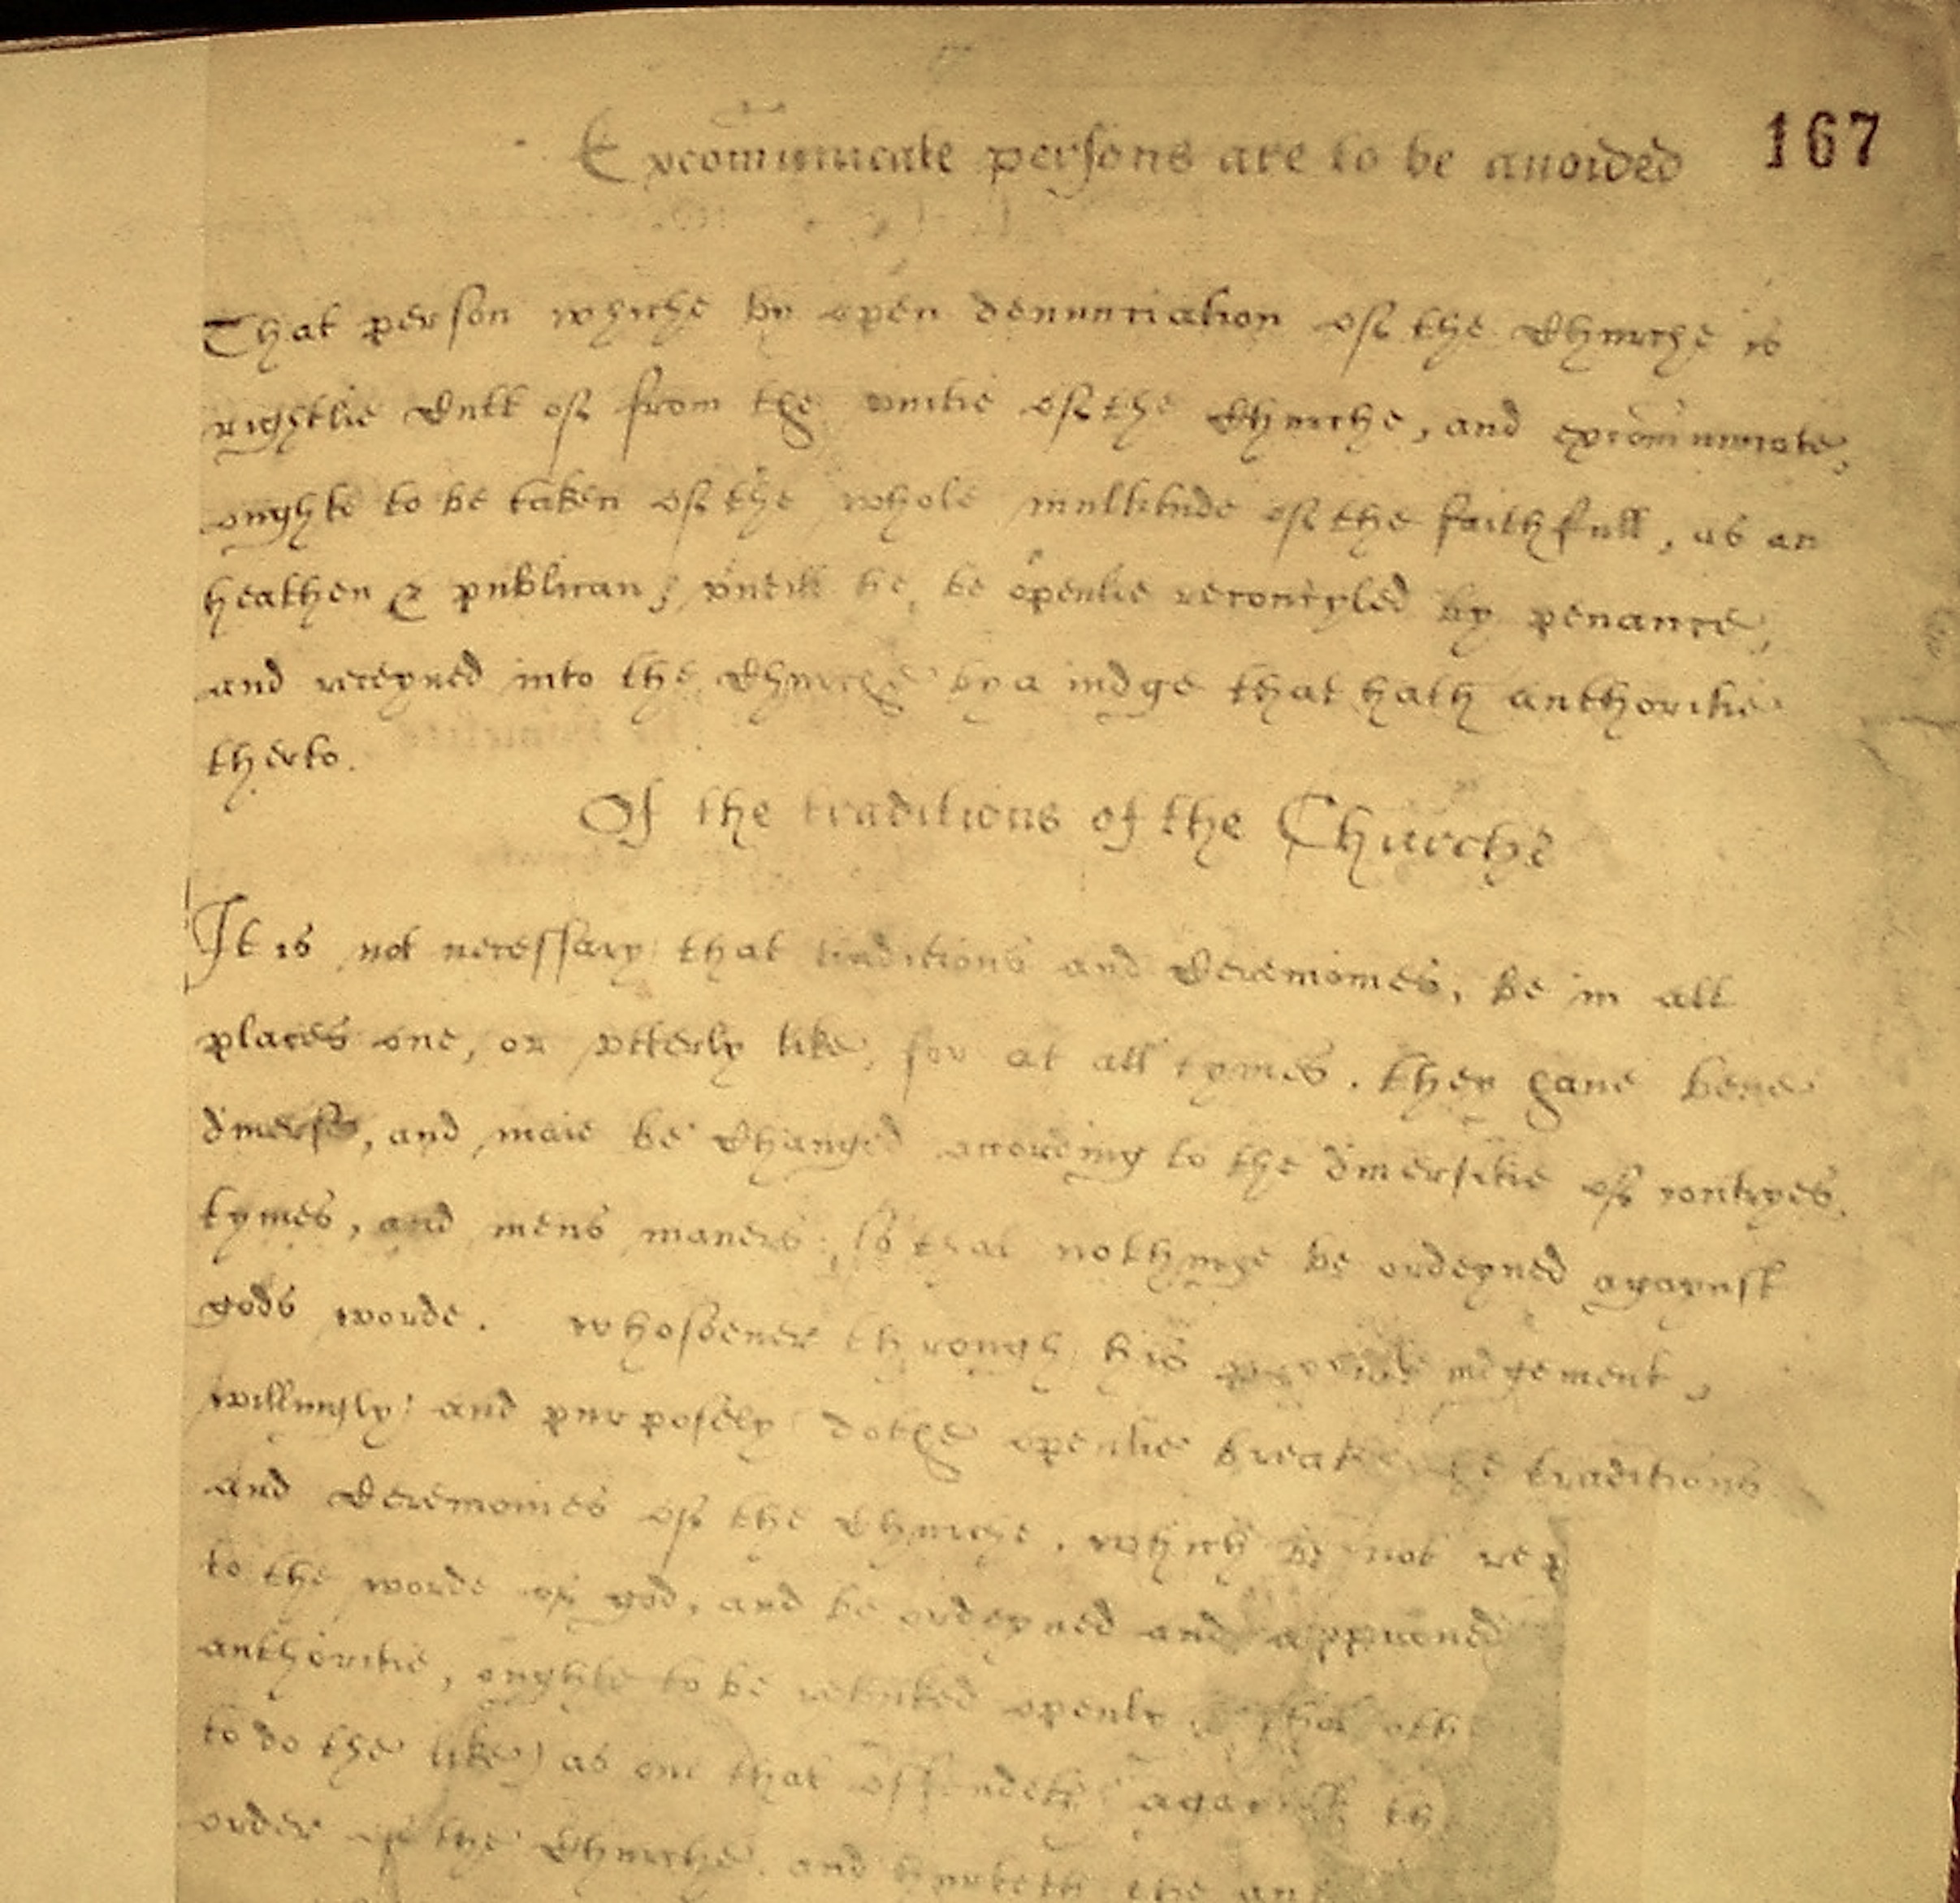 Excōmunicate persons are to be auoided 167
That person whiche by open denuntiation of the Churche is
rightlie cutt of from the vnitie of the Churche, and excōmunicate,
oughte to be taken of the whole multitude of the faithfull, as an
heathen & publican, vntill he be openlie reconcyled by penance,
and receyued into the Churche by a iudge that hath authoritie
therto.
Of the traditions of the Churche
It is not necessary that traditions and Ceremonies, be in all
places one, or vtterly like, for at all tymes, they haue bene
diuerse, and maie be changed according to the diuersitie of contryes,
tymes, and mens maners, so that nothinge be ordeyned agaynst
gods worde. Whosoeuer through his private iudgement,
willingly and purposely dothe openlie breake the traditions
and Ceremonies of the Churche, which be not rep
to the worde of god, and be ordeyned and approued
authoritie, oughte to be rebuked openly that oth
to do the like) as one that offendeth agaynst th
order of the Churche, and hurteth the au